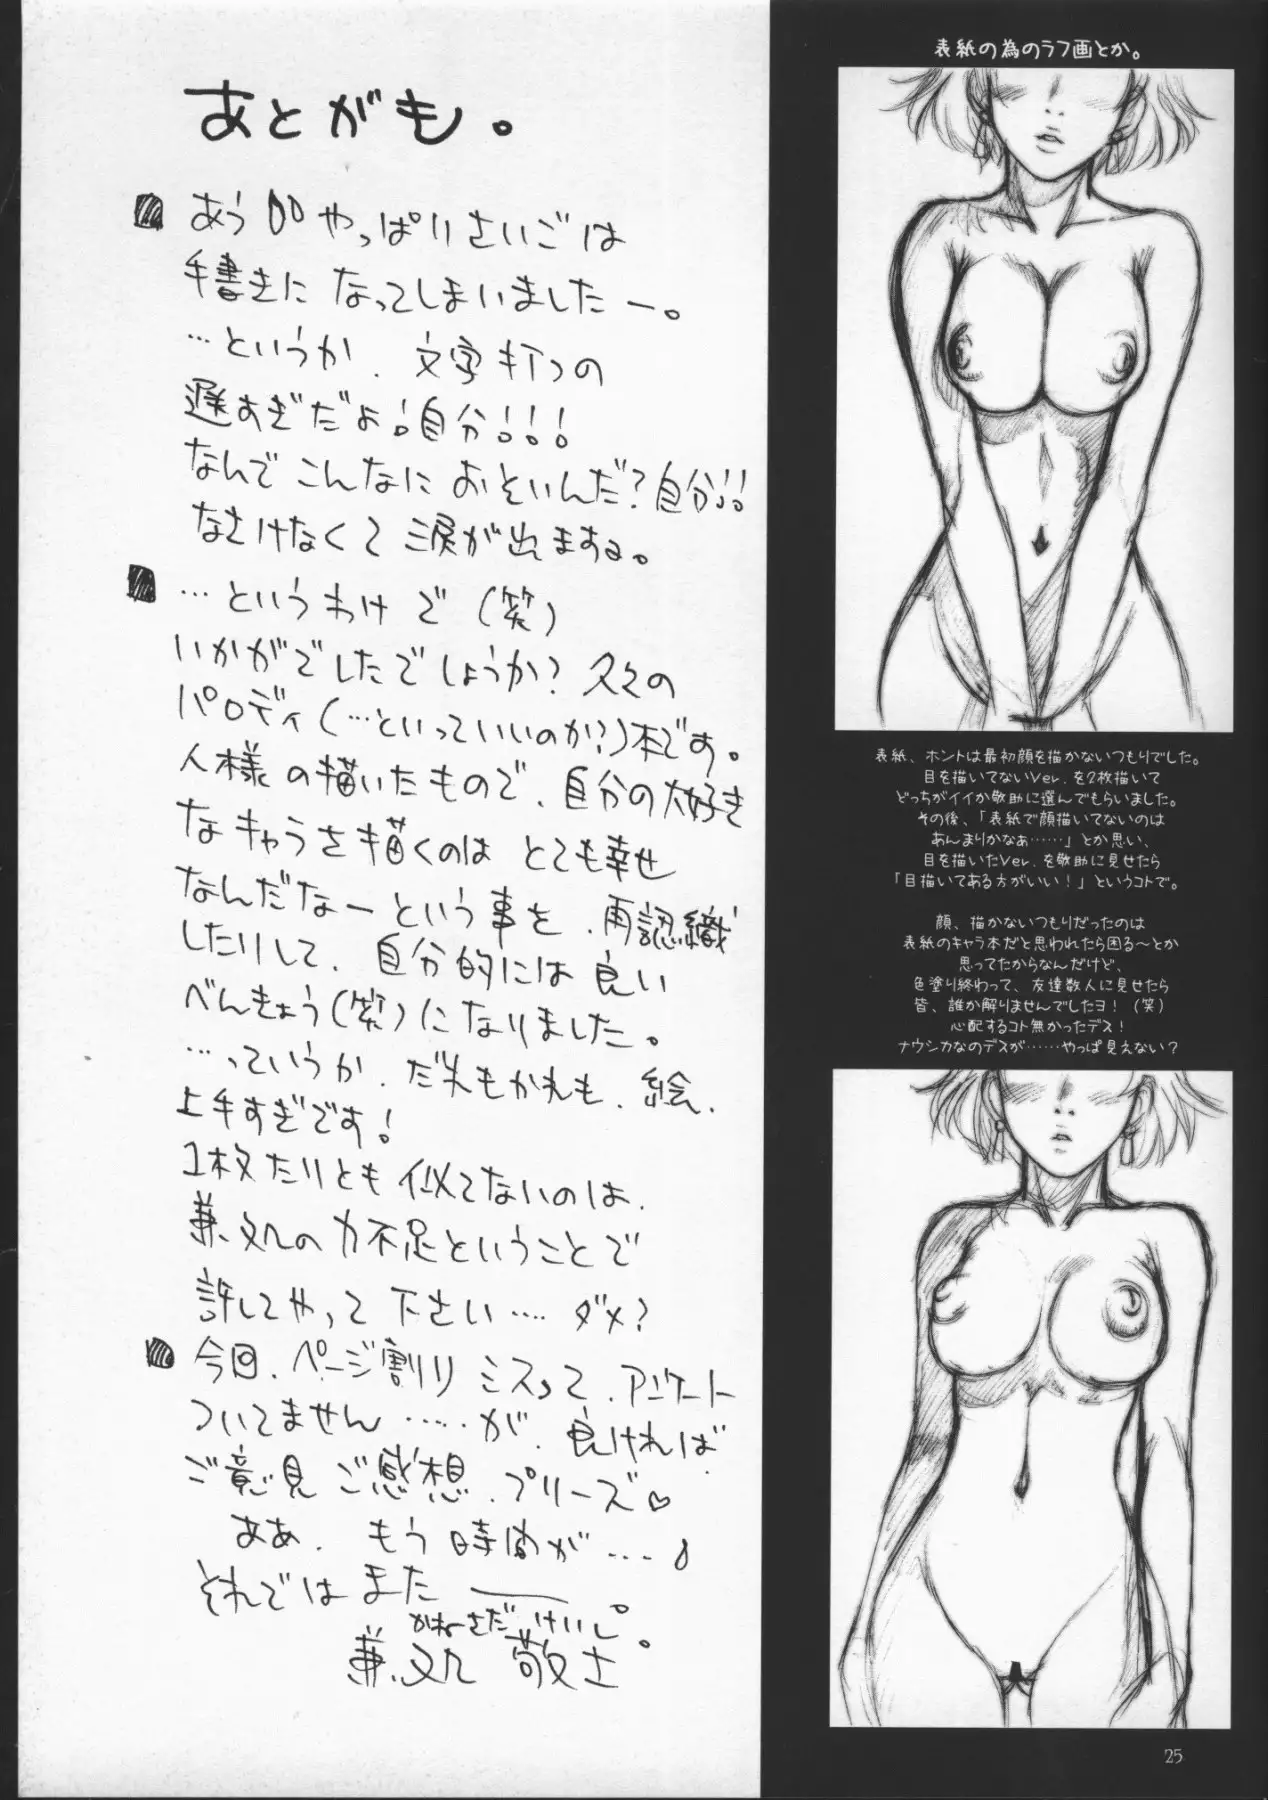 あとがも。
あうºº やっぱりさいごは
手書きに なってしまいましたー。
…というか、文字打つの
遅すぎだよ!自分!!!
なんで こんなに おそいんだ?自分!!
なさけなくて 涙が出ますぅ。
…というわけで(笑)
いかがでしたでしょうか? 久々の
パロディ(…といっていいのか?)本です。
人様の描いたもので、自分の大好き
なキャラを描くのは とても幸せ
なんだなーという事を、再認織
したりして、自分的には良い
べんきょう(笑)になりました。
…っていうか、だれもかれも、絵、
上手すぎです!
1枚たりとも似てないのは、
兼处の力不足ということで
許してやって下さい…. ダメ?
今回、ページ割りミスって、アンケート
ついてません……が、良ければ
ご意見ご感想、プリーズ♡
ああ、もう時間が….
それではまたー。
かねさだ けいし。
兼处 敬士
表紙の為のラフ画とか。
表紙、ホントは最初顔を描かないつもりでした。
目を描いてないVer.を2枚描いて
どっちがイイか敬助に選んでもらいました。
その後、「表紙で顔描いてないのは
あんまりかなぁ……」とか思い、
目を描いたVer.を敬助に見せたら
「目描いてある方がいい!」というコトで。
顔、描かないつもりだったのは
表紙のキャラ本だと思われたら困る〜とか
思ってたからなんだけど、
色塗り終わって、友達数人に見せたら
皆、誰か解りませんでしたヨ!(笑)
心配するコト無かったデス!
ナウシカなのデスが……やっぱ見えない?
25